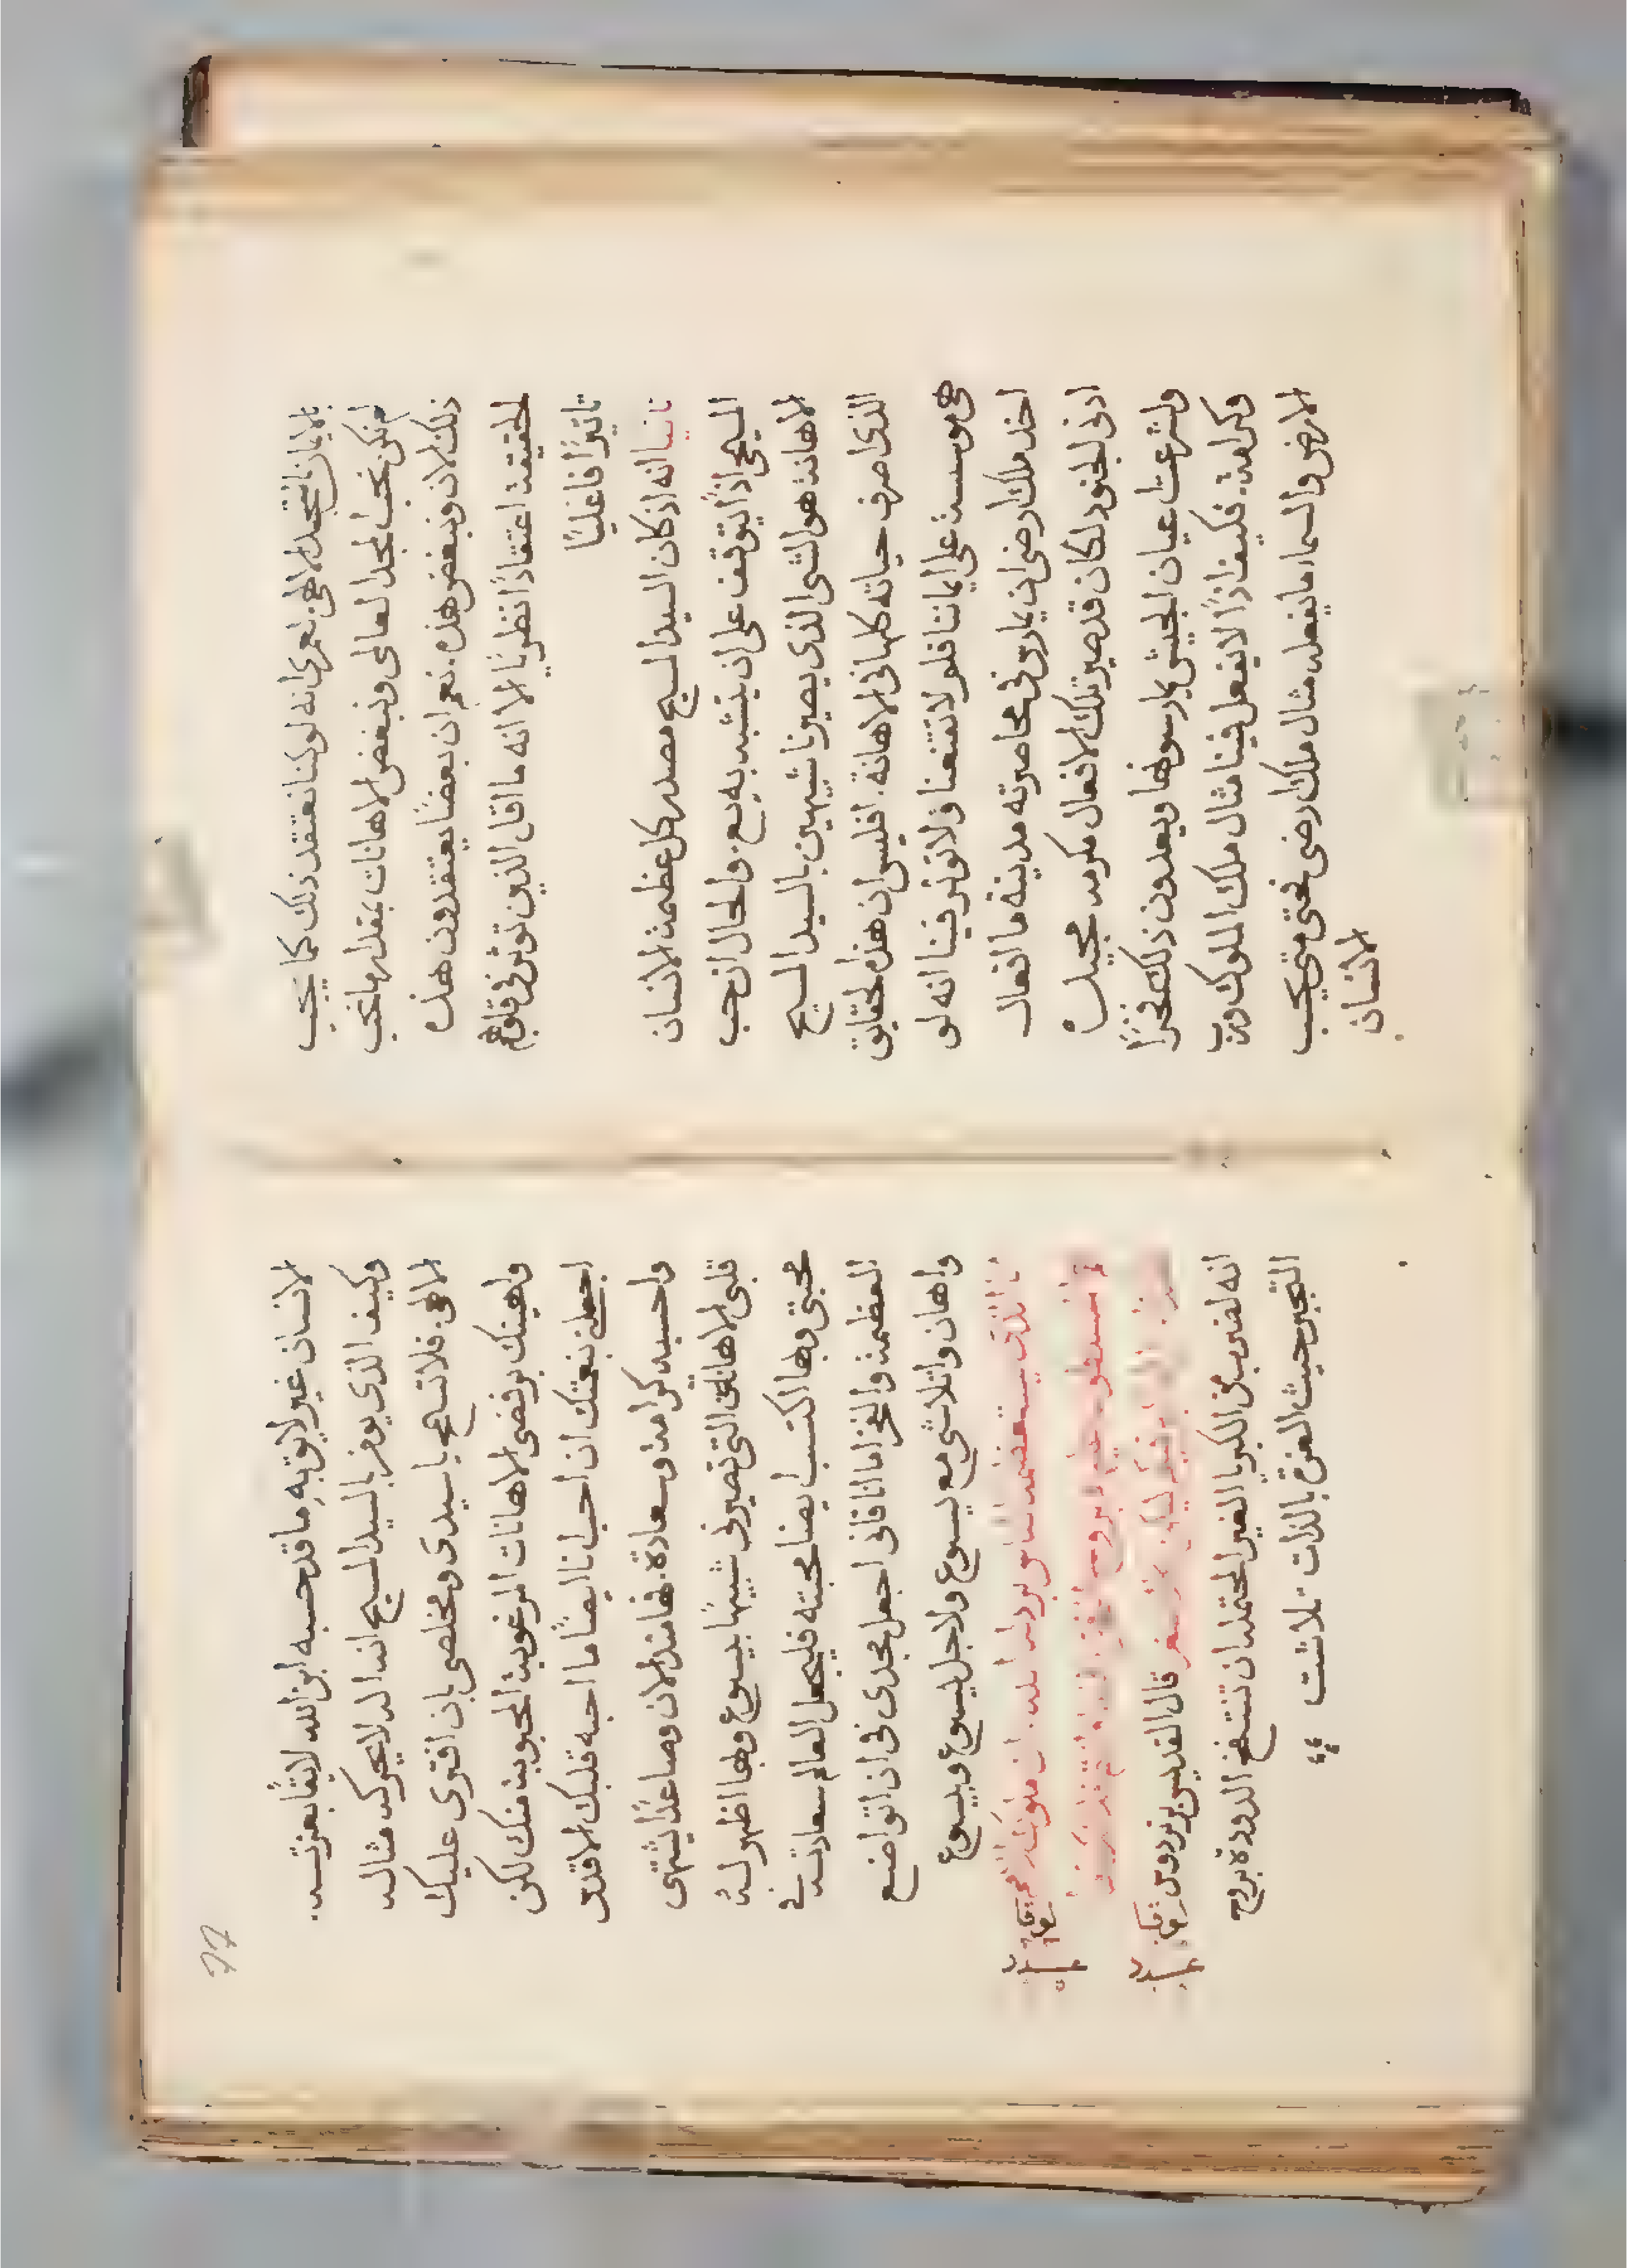 بالايمان بالتجسد الالهى لعمرى انه لو كنا نعتقد ذلك كما يجب
لم نكن نحب المجد العالمى ونبغض الاهانات بمقدار ما نحب
ذلك الان ونبغض هذه. نعم ان بعضًا يعتقدون هذه
الحقيقة اعتقادًا نظريًا الا انه ما اقل الذين توثر فى قلوبهم
تاثيرًا فاعليًا
ثانيا انه اذ كان السيد المسيح مصدر كل عظمة الانسان
المسيحى اذًا يتوقف على ان يتشبه به يسوع. والحال ان حب
الاهانة هو الشى الذى يصيرنا شبيهين بالسيد المسيح
الذى اصرف حياته كلها فى الاهانة. افليس ان هذه الحقايق
هى موسسة على ايماننا فلو لا تقنعنا ولا توثر فينا انه لو
اخذ ملك ارضى ان يمارس فى محاصرته مدينة ما افعال
ادنى الجنود لكان قد صير تلك الافعال مكرمه مجيده
ولشرعت اعيان الجيش يمارسونها ويعدون ذلك فخرًا
وكرامة. فكيف اذًا لا يفعل فينا مثال ملك الملوك ورب
الارض والسماء ما يفعله مثال ملك ارضى فحتى متى يحسب
الانسان
77
الانسان غير لايق به ما قد حسبه ابن الله لايقًا بعزته.
وكيف الذى يومن بالسيد المسيح انه اله لا يحركه مثاله
الالهى. فلا تسمح يا سيدى ومخلصى بان افترى عليك
ولهينك برفضى الاهانات المرغوبة المحبوبة منك لكن
اجعلنى بنعمتك ان احب انا ايضًا ما احبه قلبك الاقدس
واحسبه كرامة وسعادة. فها منذ الان وصاعدًا يشتهى
قلبى الاهانة التى تصيرنى شبيهًا بيسوع وبها اظهر له
محبتى وبها اكتسب ايضا محبته فليجعل العالم سعادته فى
العظمة والفخر اما انا فانى اجعل مجدى فى ان اتواضع
واهان واتلاشى مع يسوع ولاجل يسوع وبيسوع
قال القديس برنردوس
انه لضرب من الكبريا الغير المحتمل ان تنتفخ الدودة بروح
التجبر حيث العزة بالذات تلاشت